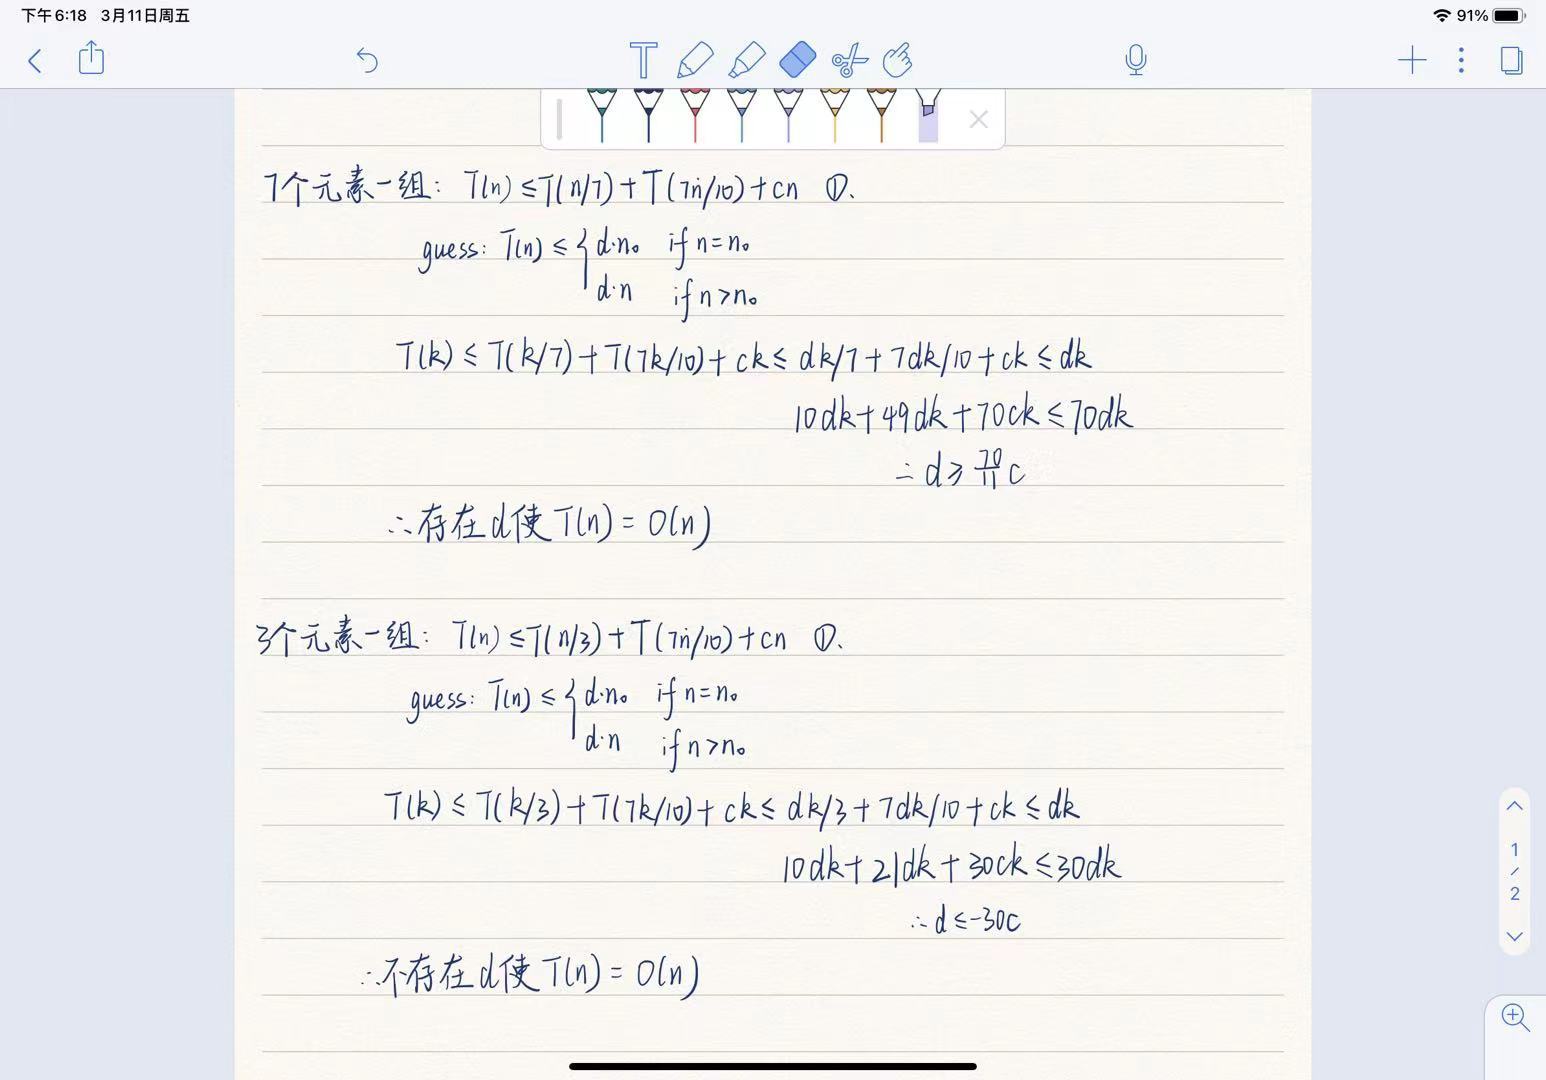 下午6:18 3月11日周五
91%
7个元素一组: T(n) ≤ T(n/7) + T(7n/10) + cn ①.
guess: T(n) ≤ { d·n₀ if n = n₀
d·n if n > n₀
T(k) ≤ T(k/7) + T(7k/10) + ck ≤ dk/7 + 7dk/10 + ck ≤ dk
10dk + 49dk + 70ck ≤ 70dk
∴ d ≥ 70/11 c
∴ 存在d使T(n) = O(n)
3个元素一组: T(n) ≤ T(n/3) + T(7n/10) + cn ①.
guess: T(n) ≤ { d·n₀ if n = n₀
d·n if n > n₀
T(k) ≤ T(k/3) + T(7k/10) + ck ≤ dk/3 + 7dk/10 + ck ≤ dk
10dk + 21dk + 30ck ≤ 30dk
∴ d ≤ -30c
∴ 不存在d使T(n) = O(n)
1/2